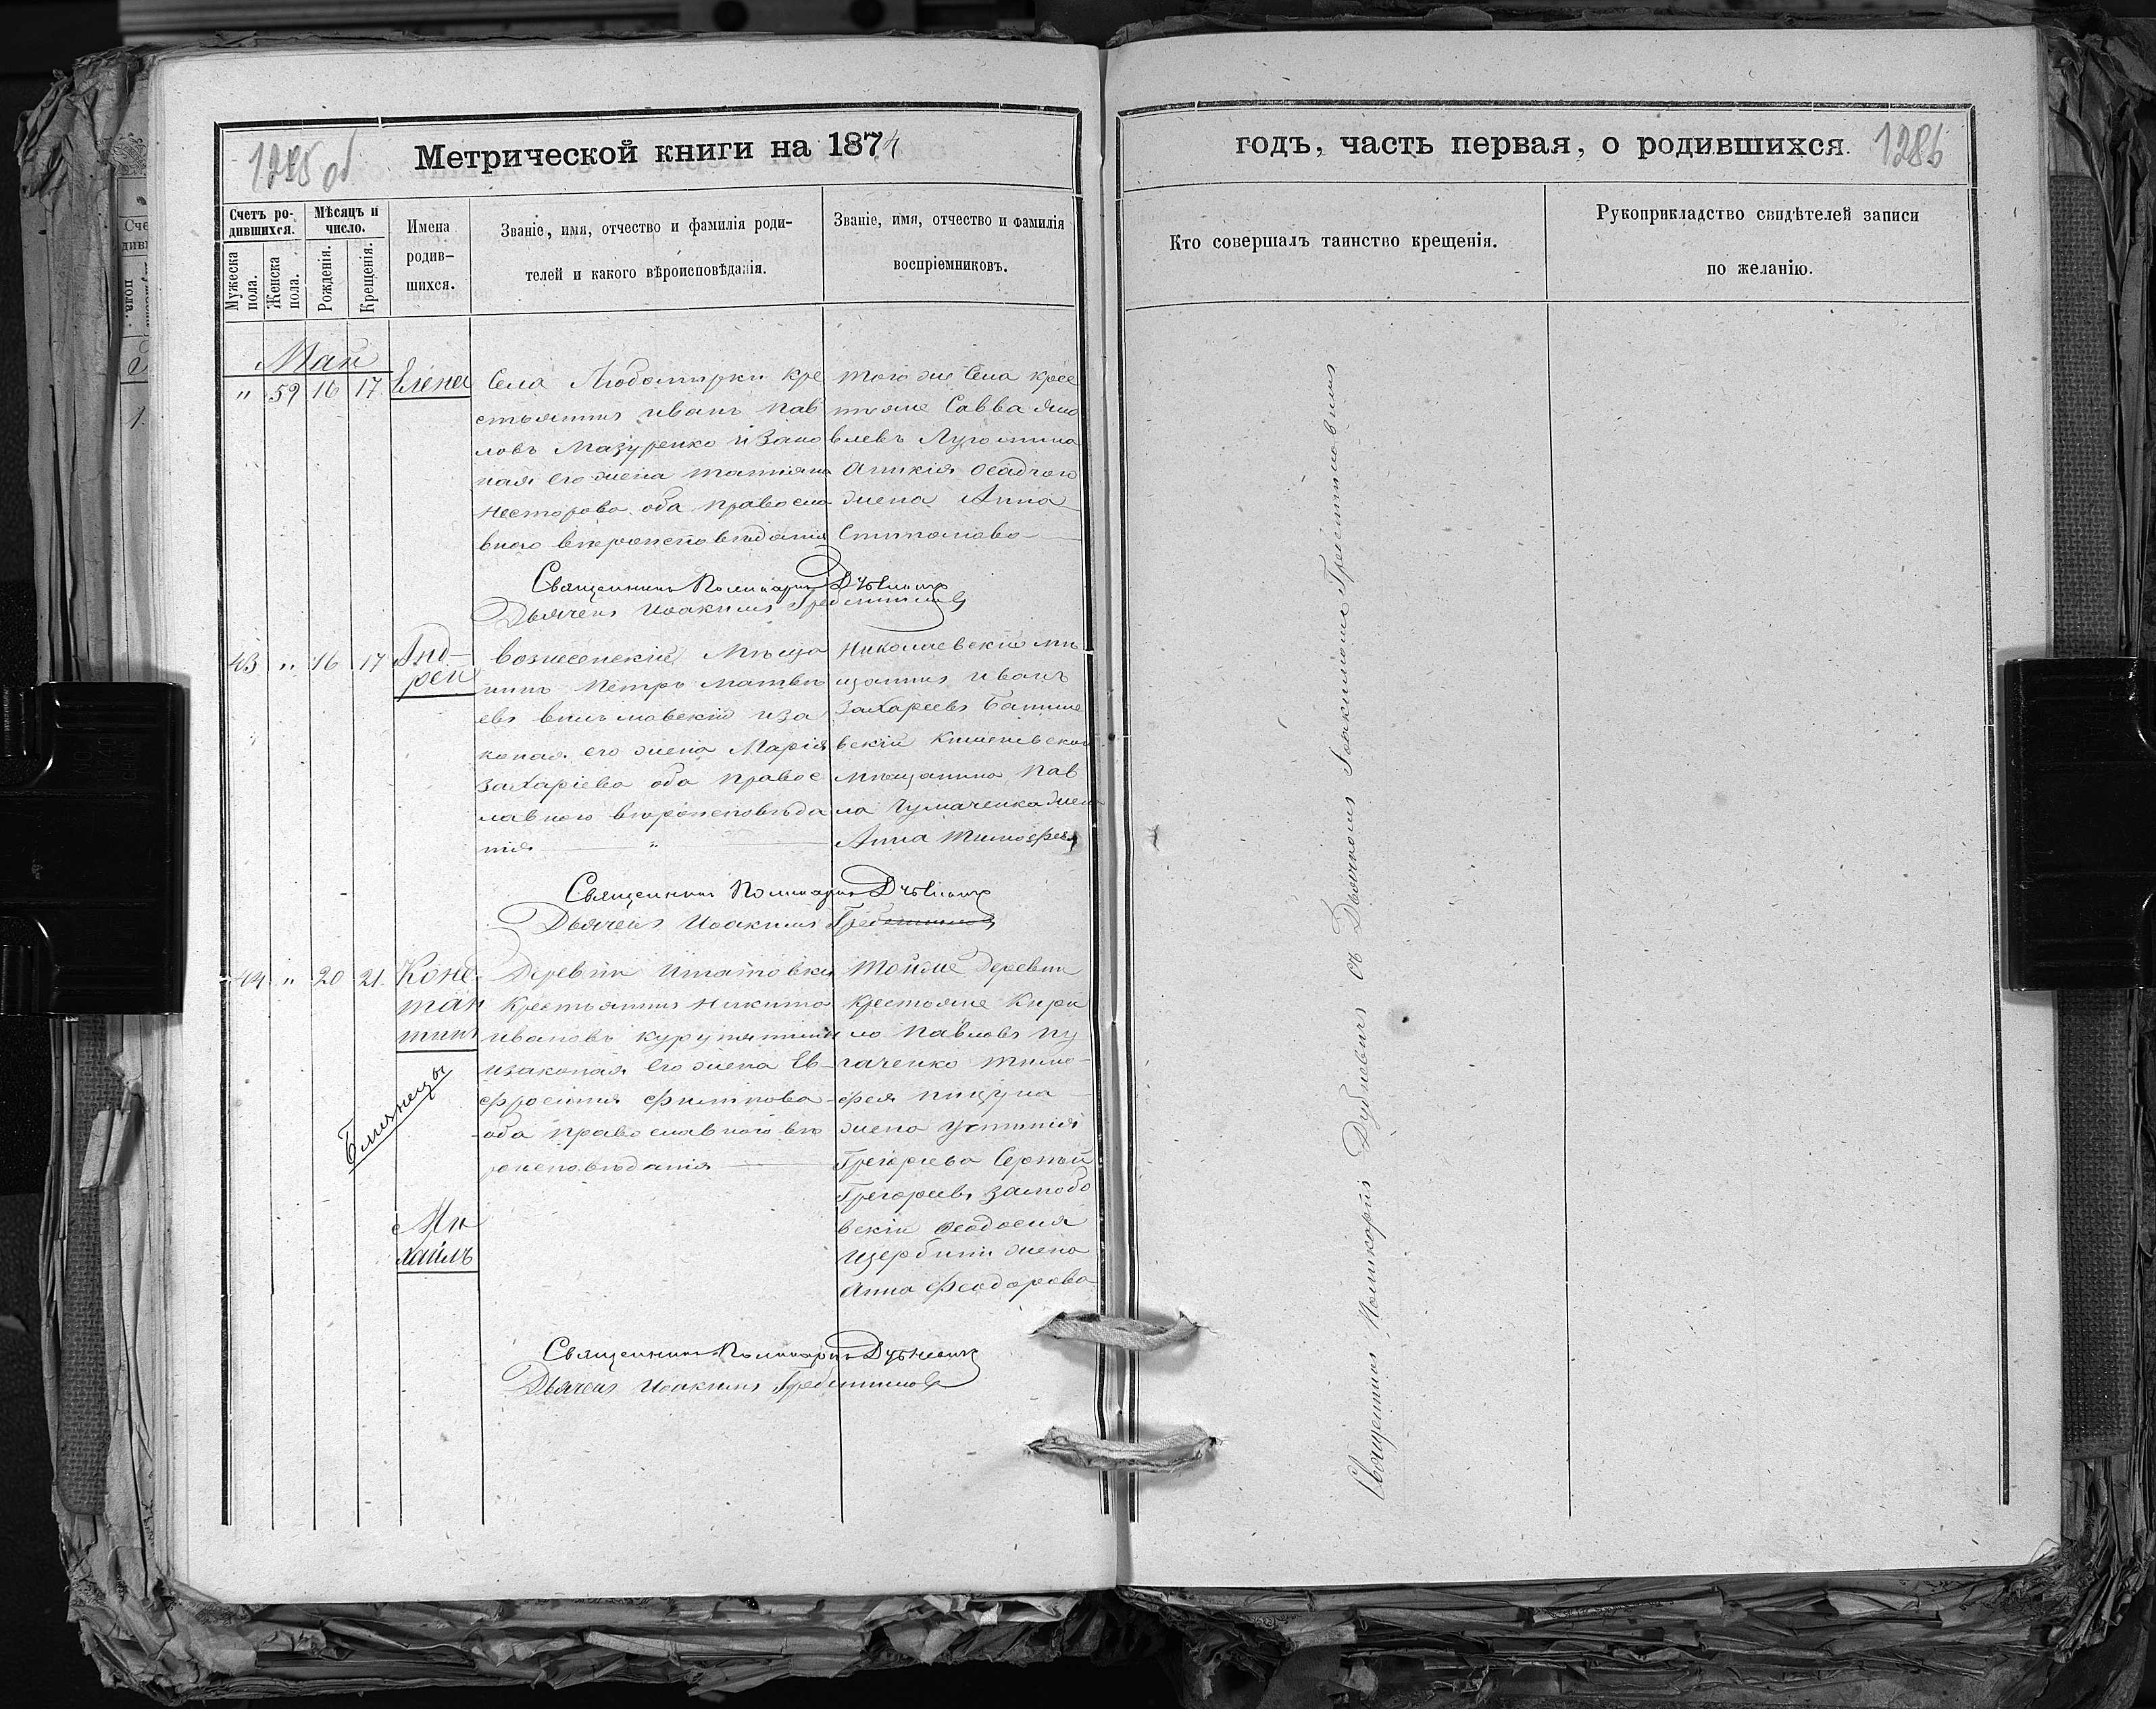 1285 об
Метрической книги на 1874
Счетъ ро-
дившихся.
Мѣсяцъ и
число.
Мужеска
пола.
Женска
пола.
Рожденія.
Крещенія.
Имена
родив-
шихся.
Званіе, имя, отчество и фамилія роди-
телей и какого вѣроисповѣданія.
Званіе, имя, отчество и фамилія
воспріемниковъ.
Май
" 59 16 17 Елена
Села Любомирки кре
стьянинъ Иванъ Пав
ловъ Мазуренко и зако
ная его жена Татіяна
Несторова оба правосла
внаго вѣроисповѣданія
того же Села крес
тяне Савва
влевъ
Осадчаго
жена Анна
Священникъ Поликарпъ Дубневичъ
Дьячекъ Иоакимъ
43 " 16 17 Анд-
рей
Вознесенскій Мѣща
нинъ Петръ Матвѣ
евъ и за
коная его жена Марія
Захаріева оба правос
лавного вѣроисповѣда
нія "
Николаевскій мѣ
щанинъ Иванъ
Захаріевъ
вскій
мѣщанина Пав
ла Чумаченка жена
Анна Тимофеева
Священникъ Поликарпъ Дубневичъ
Дьячекъ Иоакимъ
44 " 20 21 Конс
тан
тинъ
Близнецы
Ми
хаилъ
Деревни Игнатовки
Крестьянинъ Никита
Ивановъ
и законая его жена Ев-
фросинія Филипова
оба православного вѣ
роисповѣданія
Тойже деревни
Крестьяне Кири
ло Павловъ Пу
гаченко Тимо-
фея
жена Устинія
Григорьева Сергѣй
Григорьевъ
вскій Феодосия
Щербини жена
Анна Феодорова
Священникъ Поликарпъ Дубневичъ
Дьячекъ Иоакимъ
годъ, часть первая, о родившихся.
1286
Кто совершалъ таинство крещенія.
Рукоприкладство свидѣтелей записи
по желанію.
Священникъ Поликарпъ Дубневичъ съ Дьячкомъ Іоакимомъ